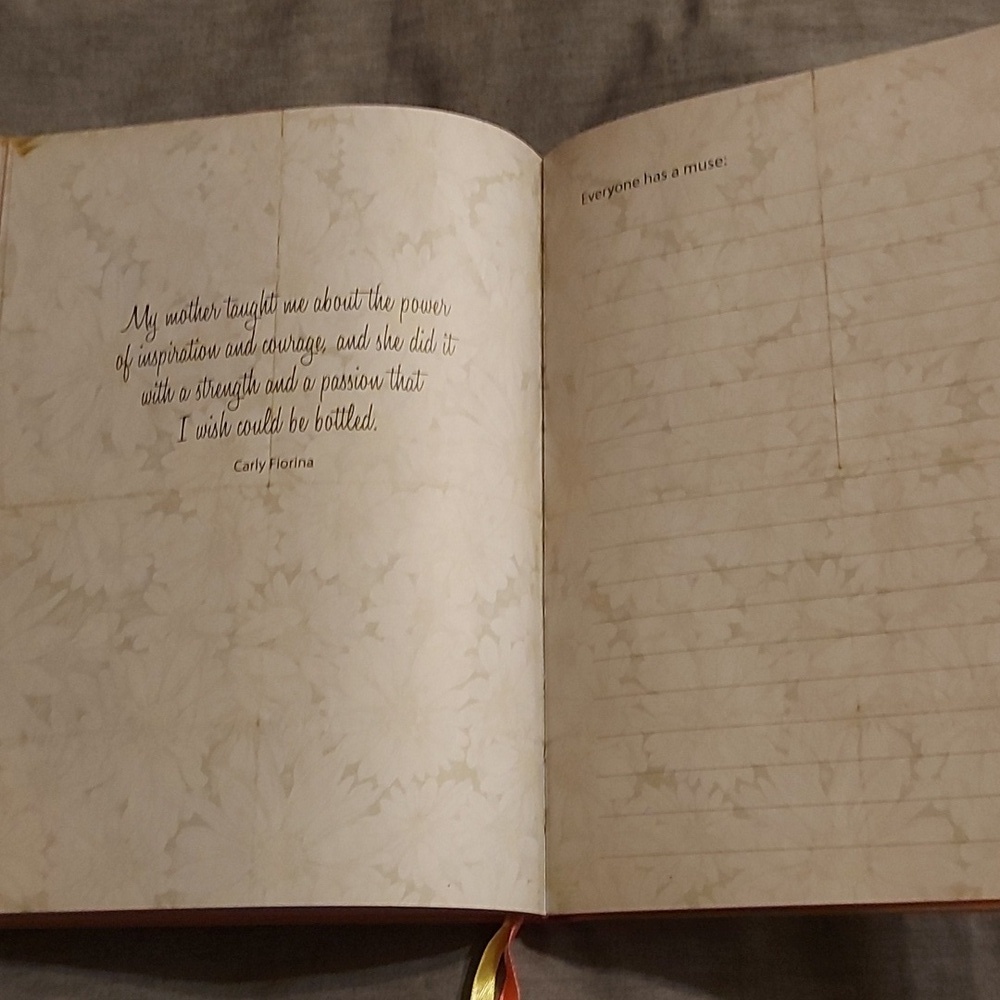 My mother taught me about the power
of inspiration and courage, and she did it
with a strength and a passion that
I wish could be bottled.
Carly Fiorina
Everyone has a muse: